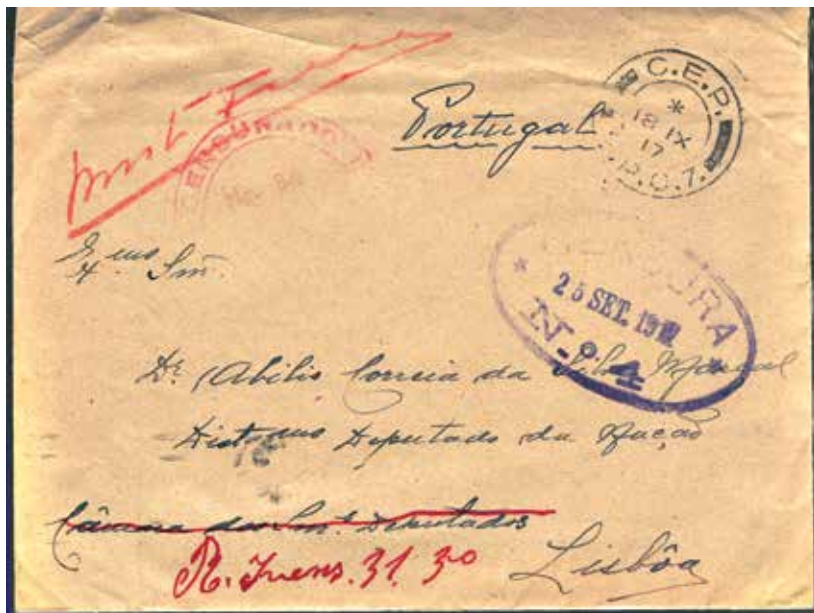 C.E.P.
18 IX
17
P.O.7.
Portugal
CENSURADO
Exmo Snr.
CENSURA
25 SET. 191
N.º 4
Dr. Abilio Correia da Silva Marçal
Distmo Deputado da Nação
Câmara dos Snrs Deputados
R. Ivens. 31. 3º
Lisbôa